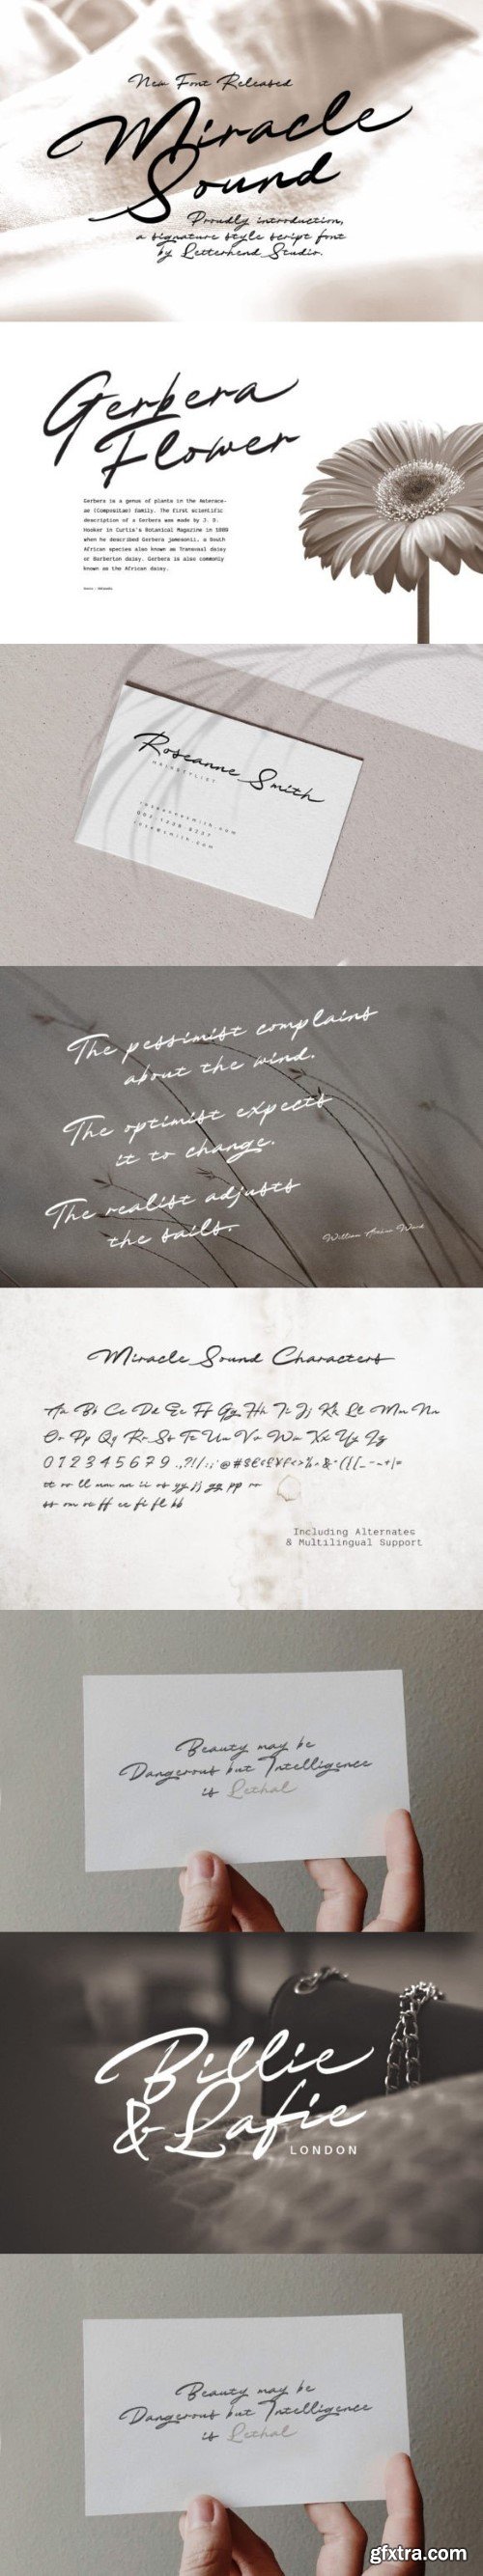 New Font Released
Miracle
Sound
Proudly introduction,
a signature style script font
by Letterhend Studio.
Gerbera
Flower
Gerbera is a genus of plants in the Asterace-
ae (Compositae) family. The first scientific
description of a Gerbera was made by J. D.
Hooker in Curtis's Botanical Magazine in 1889
when he described Gerbera jamesonii, a South
African species also known as Transvaal daisy
or Barberton daisy. Gerbera is also commonly
known as the African daisy.
Roseanne Smith
HAIRSTYLIST
The pessimist complains
about the wind.
The optimist expects
it to change.
The realist adjusts
the sails.
William Arthur Ward
Miracle Sound Characters
Aa Bb Cc Dd Ee Ff Gg Hh Ii Jj Kk Ll Mm Nn
Oo Pp Qq Rr Ss Tt Uu Vv Ww Xx Yy Zz
Including Alternates
& Multilingual Support
Beauty may be
Dangerous but Intelligence
is Lethal
Billie
& Lafie
LONDON
Beauty may be
Dangerous but Intelligence
is Lethal
gfxtra.com